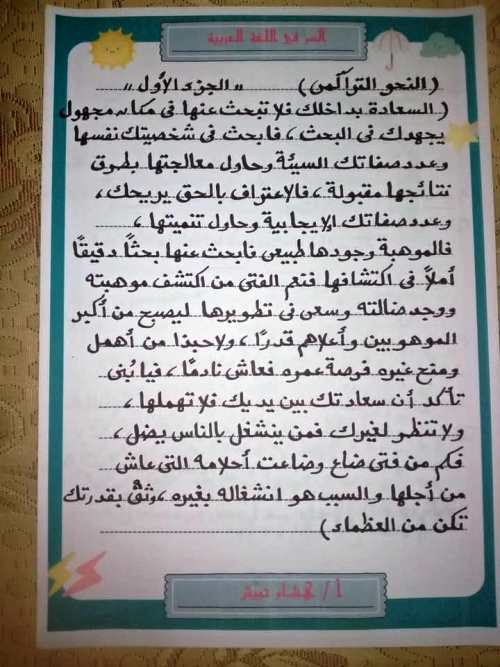 السر في اللغة العربية
(النحو التراكمي) ،، الجزء الأول ،،
(السعادة بداخلك فلا تبحث عنها في مكان مجهول
يجهدك في البحث ، فابحث في شخصيتك نفسها
وعدد صفاتك السيئة وحاول معالجتها بطرق
نتائجها مقبولة ، فالاعتراف بالحق يريحك ،
وعدد صفاتك الإيجابية وحاول تنميتها ،
فالموهبة وجودها طبيعي فابحث عنها بحثًا دقيقًا
أملاً في اكتشافها فنعم الفتى من اكتشف موهبته
ووجد ضالته وسعى في تطويرها ليصبح من أكبر
الموهوبين وأعلاهم قدرًا ، ولا حبذا من أهمل
ومنح غيره فرصة عمره فعاش نادمًا ، فيا بُنى
تأكد أن سعادتك بين يديك فلا تهملها ،
ولا تنظر لغيرك فمن ينشغل بالناس يضل ،
فكم من فتى ضاع وضاعت أحلامه التى عاش
من أجلها والسبب هو انشغاله بغيره ، وثق بقدرتك
تكن من العظماء)
أ /